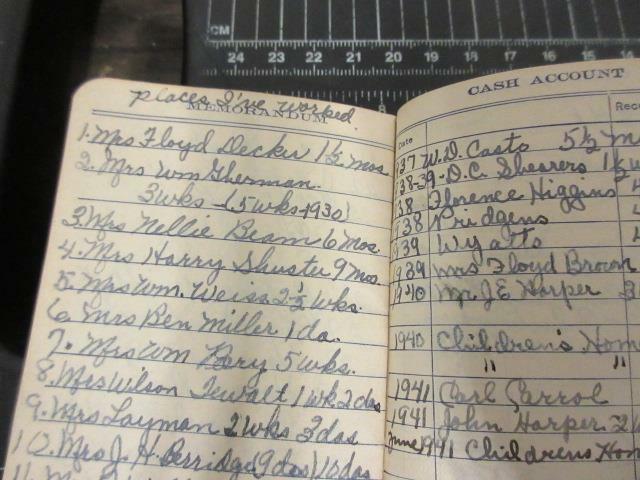 CM
24 23 22 21 20 19 18 17 16 15 14
8
places I've worked.
MEMORANDUM
1. Mrs Floyd Decker 1½ mos
2. Mrs Wm Gherman.
3 wks - (5 wks - 1930)
3. Mrs Nellie Beam 6 mos.
4. Mrs Harry Shuster 9 mos.
5. Mrs Wm. Weiss 2½ wks.
6 Mrs Ben Miller 1 da.
7. Mrs Wm Bery 5 wks.
8. Mrs Wilson Tewalt 1 wk 2 das
9. Mrs Layman 2 wks 3 das
10. Mrs J. H. Derridge (9 das) 10 das
11.
CASH ACCOUNT
Date
Rec
937 W. D. Casto 5½ m
938-39 - O. C. Shearers 1½ y
938 Florence Higgins
938 Pridgens
939 Wyatts
1939 Mrs Floyd Brown
1940 Mr. J E Harper 3
1940 Children's Hom
" "
1941 Carl Carrol
1941 John Harper 2 W
June 1941 Childrens Hom